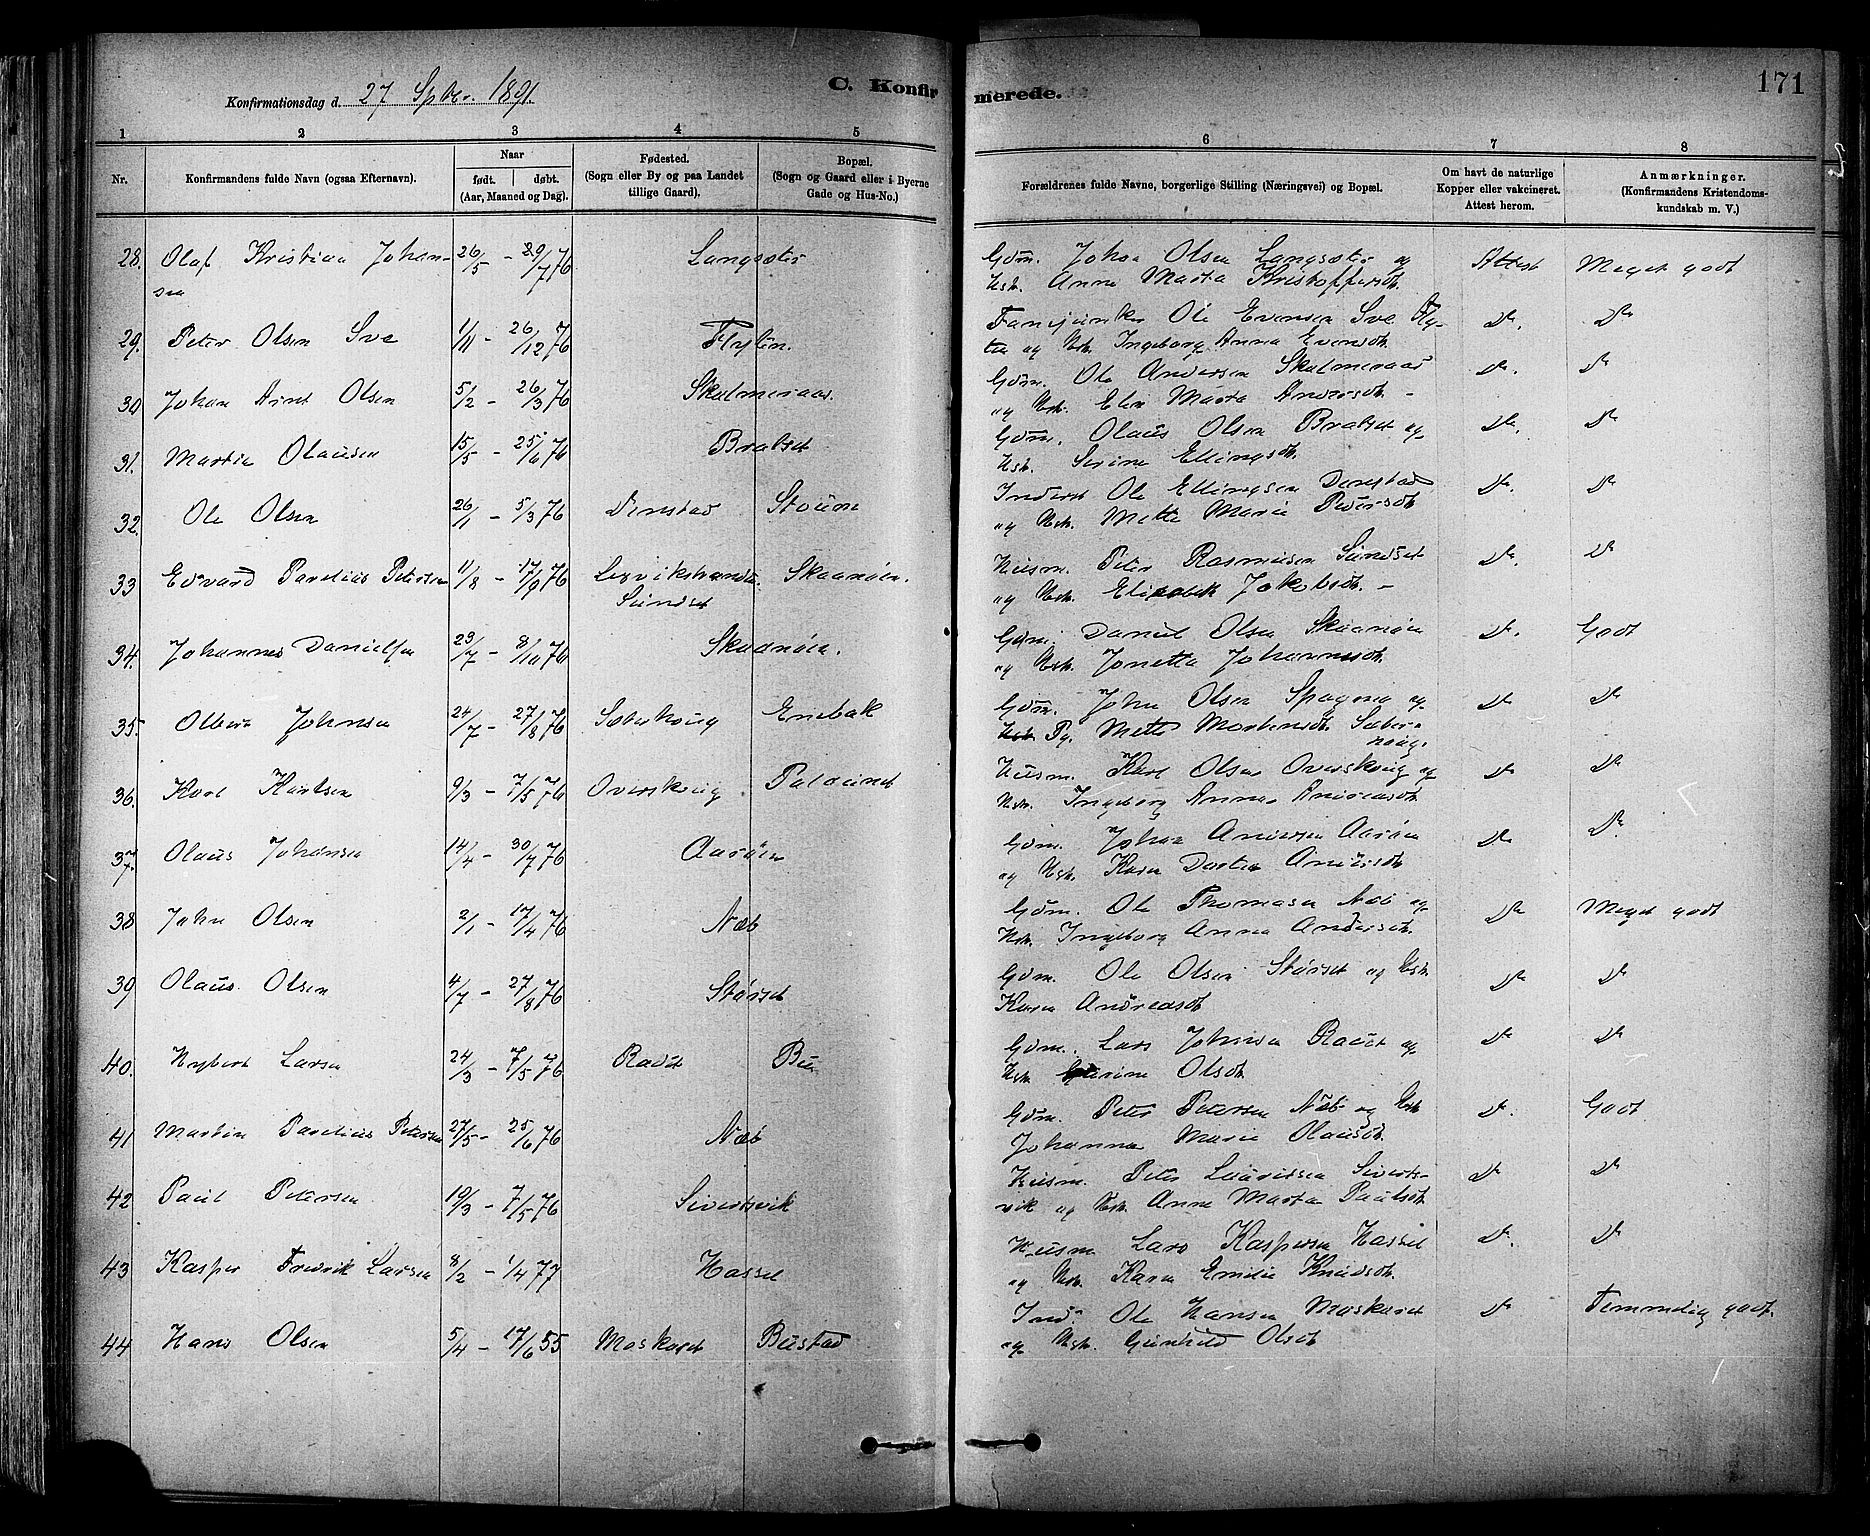 Konfirmationsdag d. 27 Septbr. 1891.
C. Konfirmerede.
171
1 2 3 4 5 6 7 8
Nr.
Konfirmandens fulde Navn (ogsaa Efternavn).
Naar
født. døbt.
(Aar, Maaned og Dag).
Fødested.
(Sogn eller By og paa Landet
tillige Gaard).
Bopæl.
(Sogn og Gaard eller i Byerne
Gade og Hus-No.)
Forældrenes fulde Navne, borgerlige Stilling (Næringsvei) og Bopæl.
Om havt de naturlige
Kopper eller vakcineret.
Attest herom.
Anmærkninger.
(Konfirmandens Kristendoms-
kundskab m. V.)
28. Olaf Kristian Johan- 26/5 - 29/7 76 Langsæter Gdm. Johan Olsen Langsæter og Attest Meget godt
sen Hst. Anne Marta Kristoffersdt.
29. Peter Olsen Sve 1/11 - 26/12 76 Flyten. Ole Evensen Sve Fly- Do. Do
ten og Hst. Ingeborg Anna Evensdt.
30 Johan Arnt Olsen 5/2 - 26/3 76 Skalmeraas. Gdm. Ole Andersen Skalmeraas Do. Do
og Hst. Elen Marta Andersdt. -
31. Martin Olausen 15/5 - 25/6 76 Bratset Gdm. Olaus Olsen Bratset og Do. Do
Hst. Serine Ellingsdt.
32. Ole Olsen 26/1 - 5/3 76 Denstad Stoune Inderst Ole Ellingsen Denstad Do. Do
og Hst. Mette Marie Pedersdt
33 Edvard Parelius Petersen 11/8 - 17/9 76 Lesvikstranden. Skaanøien. Husm. Peter Rasmusen Sundset Do. Do
Sundset og Hst. Elisabeth Jakobsdt. -
34. Johannes Danielsen 23/7 - 8/10 76 Skaanøien. Gdm. Daniel Olsen Skaanøien Do. Godt
og Hst. Jonetta Johannesdt.
35. Olbert Johnsen 24/7 - 27/8 76 Sæterhoug Enebak Gdm. John Olsen og Do Do
Pg. Mette Mortensdt. Sæter-
houg.
36. Karl Karlsen 9/3 - 7/5 76 Overskoug. Husm. Karl Olsen Overskoug og Do Do
Hst. Ingeborg Anna Andreasdt
37. Olaus Johansen 14/4 - 30/7 76 Aarøen Gdm. Johan Andersen Aarøen Do Do
og Hst. Karen Dorten Andersdt
38 John Olsen 2/1 - 17/4 76 Næb Gdm. Ole Thomasen Næb og Do Meget godt
Hst. Ingeborg Anna Andersdt.
39 Olaus Olsen 4/7 - 27/8 76 Størset Gdm. Ole Olsen Størset og Hst. Do Do
Karen Andreasdt
40. Larsen 24/3 - 7/5 76 Gdm. Lars Johnsen og Do Do
Hst. Olsdt
41 Martin Parelius Petersen 27/5 - 25/6 76 Næb Gdm. Peter Petersen Næb og Hst Do. Godt
Johanna Marie Olausdt.
42 Paul Petersen 19/3 - 7/5 76 Sivertsvik Husm. Peter Lauritsen Siverts- Do Do
vik og Hst. Anne Marta Paulsdt
43 Kasper Fredrik Larsen 8/2 - 1/4 77 Hassel Husm Lars Kaspersen Hassel Do. Do
og Hst. Karen Emilie Knudsdt.
44 Hans Olsen 5/4 - 17/6 55 Moskaret Bustad Ind. Ole Hansen Moskaret Do Temmelig godt.
og Hst. Gunhild Olsdt